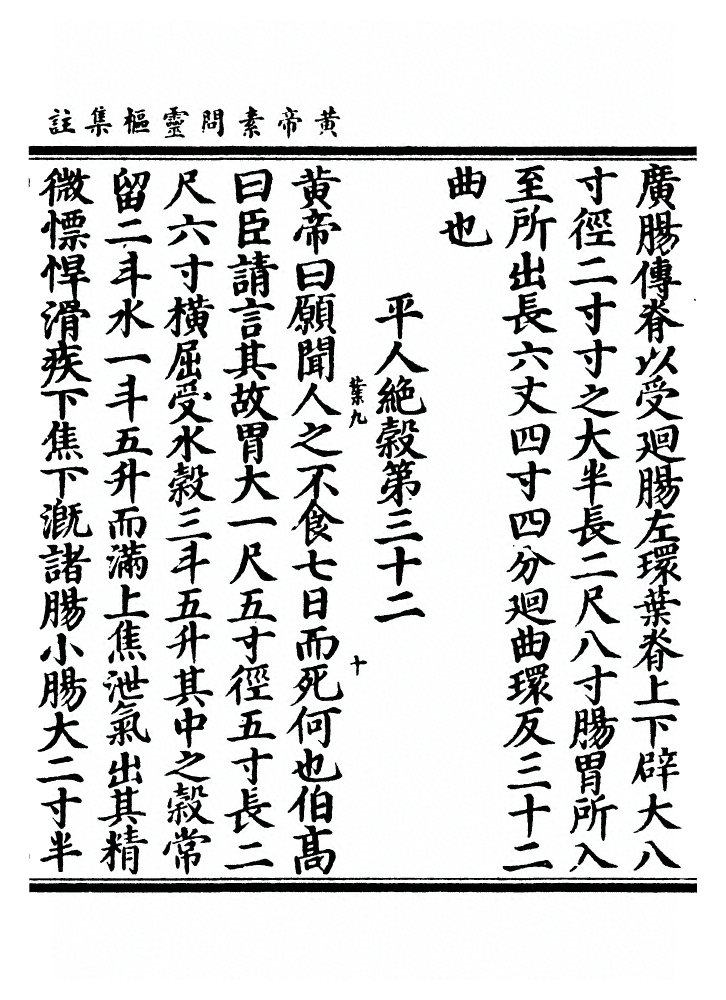 黃帝素問靈樞集註
廣腸傳脊以受廻腸左環葉脊上下辟大八
寸徑二寸寸之大半長二尺八寸腸胃所入
至所出長六丈四寸四分廻曲環反三十二
曲也
平人絶穀第三十二
葉九 十
黃帝曰願聞人之不食七日而死何也伯高
曰臣請言其故胃大一尺五寸徑五寸長二
尺六寸橫屈受水穀三斗五升其中之穀常
留二斗水一斗五升而滿上焦泄氣出其精
微慓悍滑疾下焦下溉諸腸小腸大二寸半